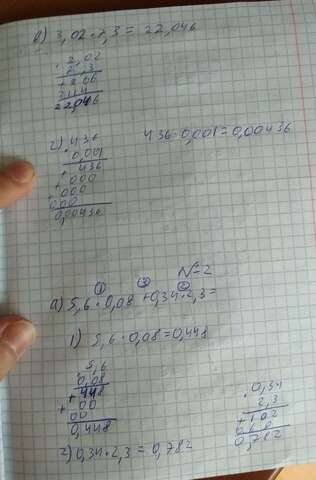 в) 3,02 · 7,3 = 22,046
3,02
7,3
+ 906
2114
22,046
г) 436
0,001
+ 436
+ 000
000
000
0,00436
436 · 0,001 = 0,00436
N=2
1 3 2
а) 5,6 · 0,08 + 0,34 · 2,3 =
1) 5,6 · 0,08 = 0,448
5,6
0,08
+ 448
+ 00
00
0,448
0,34
2,3
+ 102
068
0,782
2) 0,34 · 2,3 = 0,782